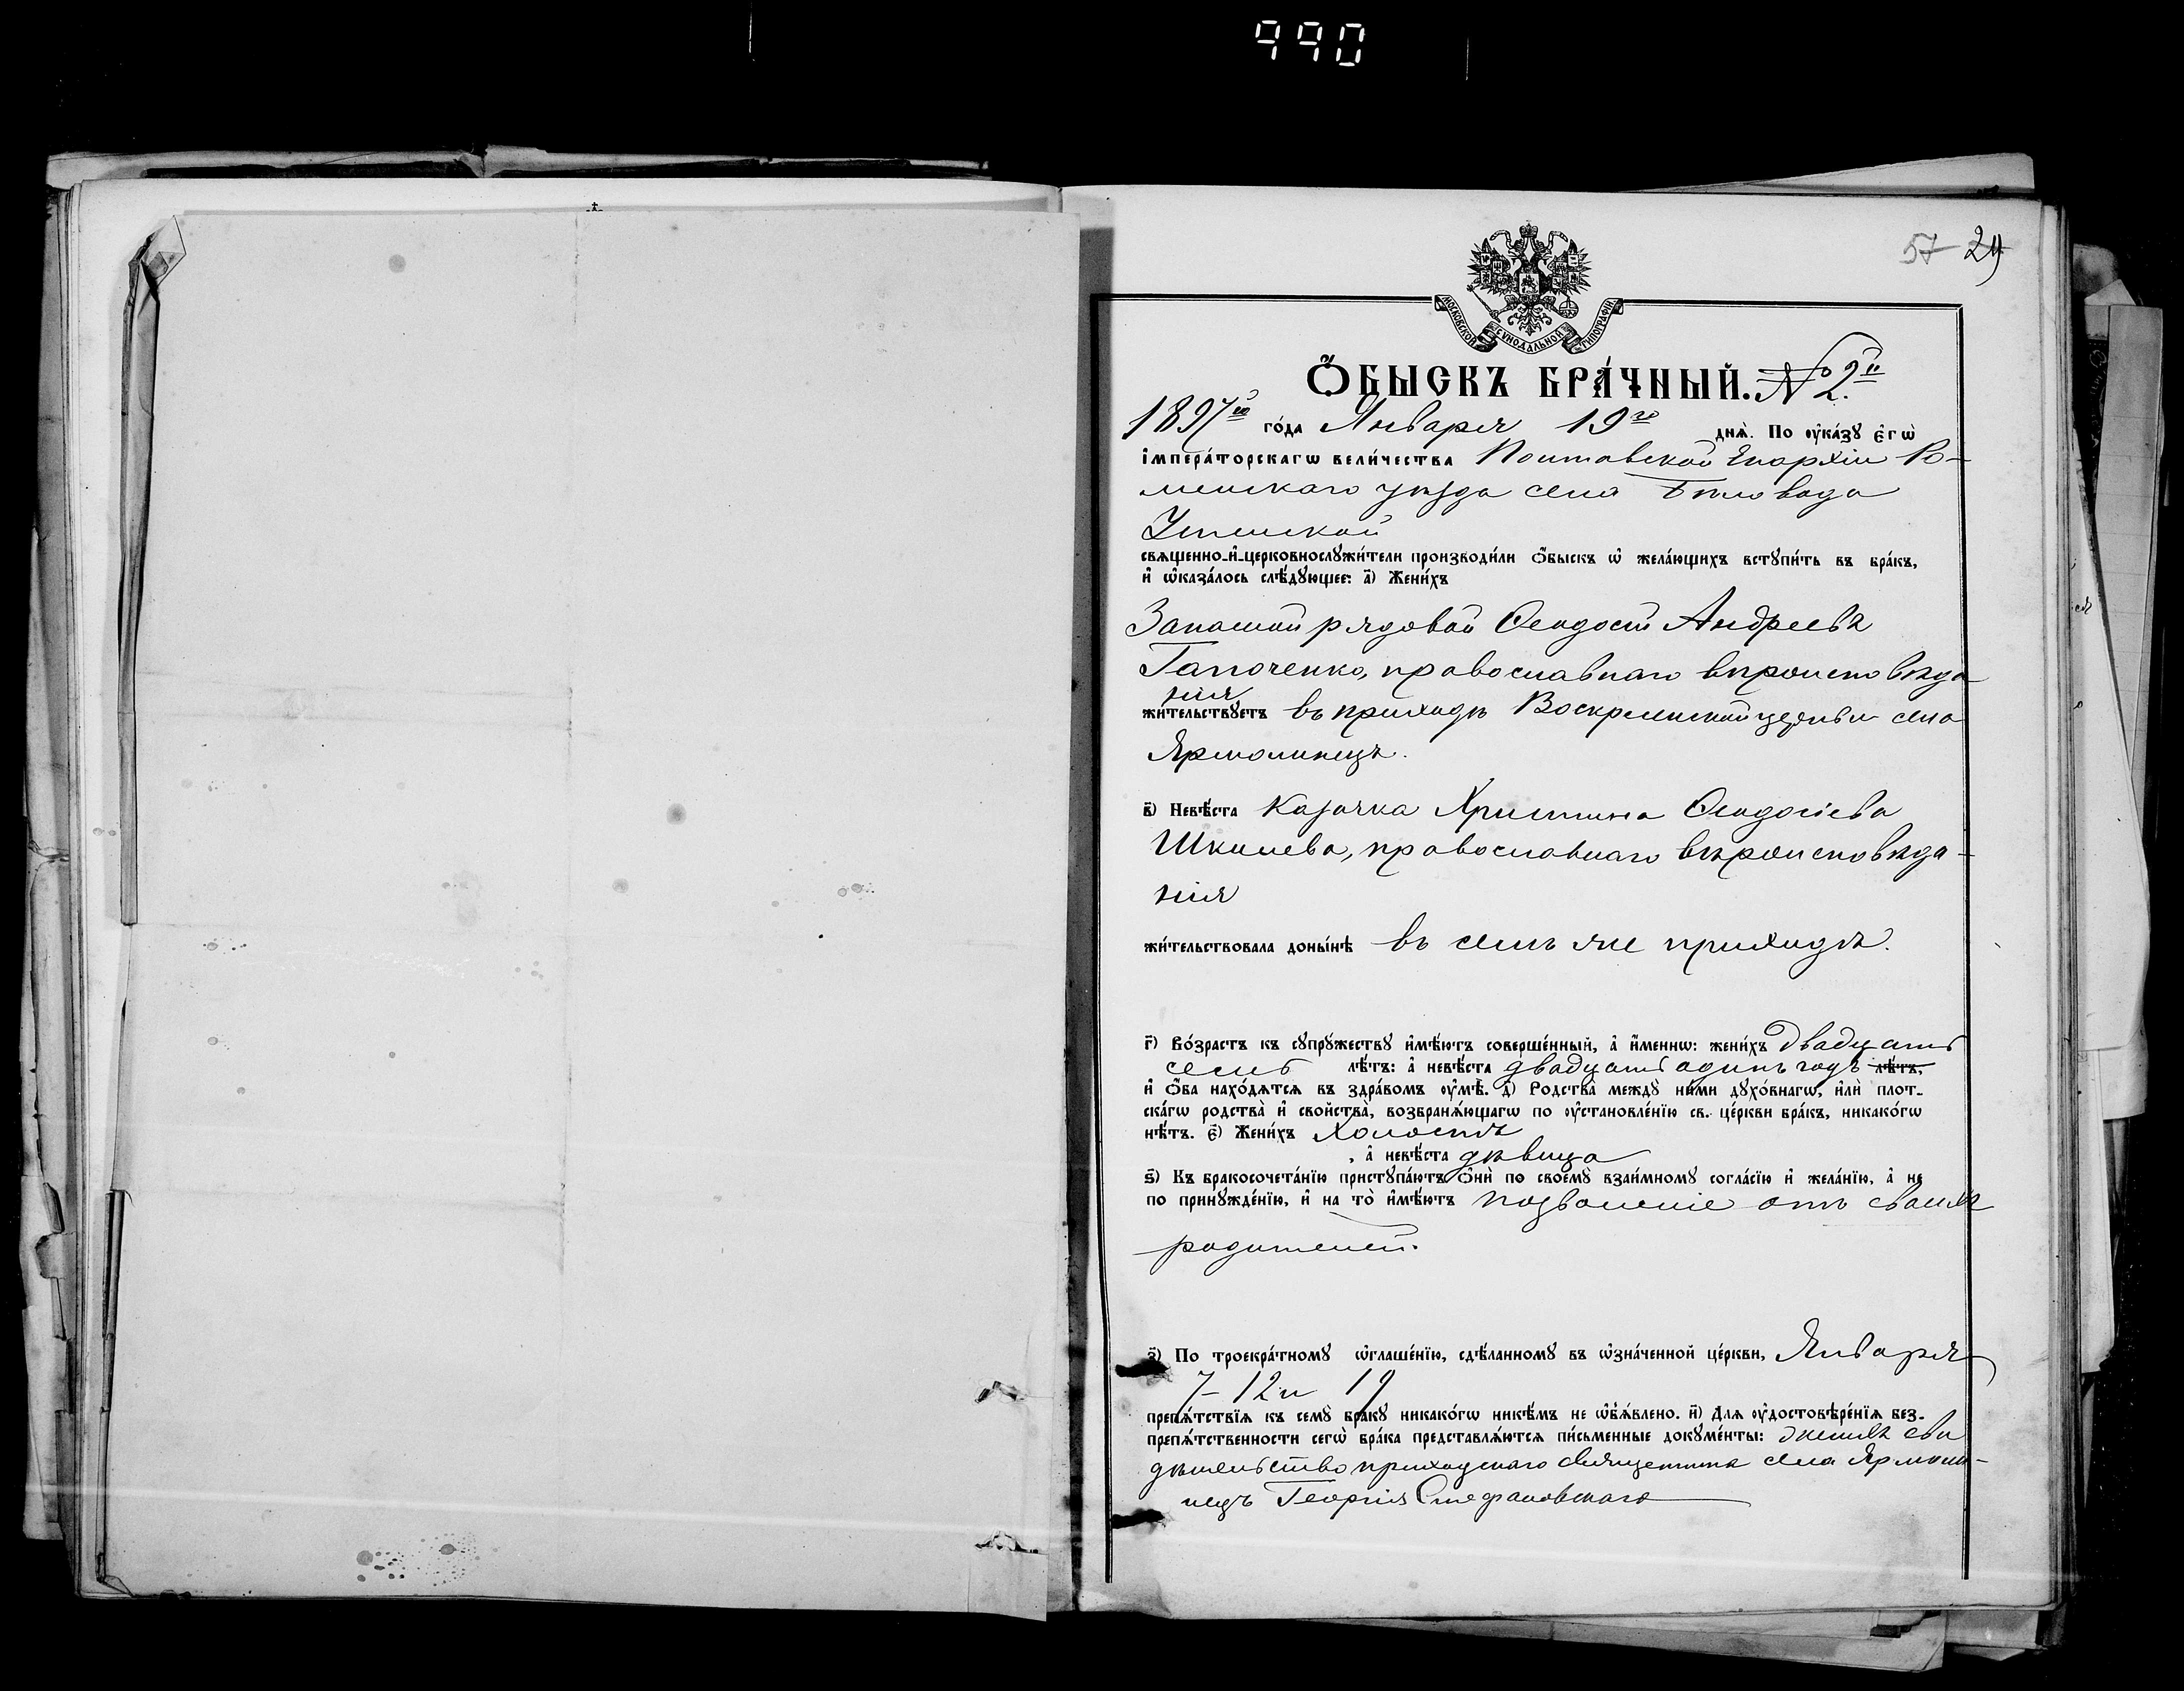 990
57 29
МОСКОВСКОЙ СѴНОДАЛЬНОЙ ТИПОГРАФІИ
Ѻ҆БЫСКЪ БРА́ЧНЫЙ. № 2й
1897го го́да Января 19го днѧ̀. По ѹ҆ка́зꙋ є҆гѡ̀
і҆мпера́торскагѡ вели́чества Полтавской Епархіи Ро-
менскаго уѣзда села Бѣловода
Успенской
свѧщенно-и҆-церковнослꙋжи́тели производи́ли ѻ҆́быскъ ѡ҆ жела́ющихъ встꙋпи́ть въ бра́къ,
и҆ ѡ҆каза́лось слѣ́дꙋющее: а҃) Жени́хъ
Запасный рядовой Ѳеодосій Андреевъ
Гапоченко, православнаго вѣроисповѣда-
нія
жи́тельствꙋетъ въ приходѣ Воскресенской церкви села
Ярмолинецъ.
в҃) Невѣ́ста Казачка Христина Ѳеодосіева
Шкилева, православнаго вѣроисповѣда-
нія
жи́тельствовала доны́нѣ въ семъ же приходѣ.
г҃) Во́зрастъ къ сꙋпрꙋ́жествꙋ и҆мѣ́ютъ соверше́нный, а҆ и҆́менно: жени́хъ двадцать
семь лѣ́тъ: а҆ невѣ́ста двадцать одинъ годъ лѣ́тъ,
и҆ ѻ҆́ба нахо́дѧтсѧ въ здра́вомъ ѹ҆мѣ̀. д҃) Родства̀ междꙋ̀ ни́ми дꙋхо́внагѡ, и҆лѝ плот-
ска́гѡ родства̀ и҆ свойства̀, возбранѧ́ющагѡ по ѹ҆становле́нїю св. це́ркви бра́къ, никако́гѡ
нѣ́тъ. є҃) Жени́хъ холостъ
, а҆ невѣ́ста дѣвица
ѕ҃) Къ бракосочета́нїю пристꙋпа́ютъ ѻ҆нѝ по своемꙋ̀ взаи́мномꙋ согла́сїю и҆ жела́нїю, а҆ не
по принꙋжде́нїю, и҆ на то̀ и҆мѣ́ютъ позволеніе отъ своихъ
родителей.
з҃) По троекра́тномꙋ ѡ҆глаше́нїю, сдѣ́ланномꙋ въ ѡ҆зна́ченной це́ркви, Января
7- 12 и 19
препѧ́тствїѧ къ семꙋ̀ бра́кꙋ никако́гѡ никѣ́мъ не ѡ҆б̾ѧ́влено. и҃) Длѧ ѹ҆достовѣре́нїѧ без-
препѧ́тственности сегѡ̀ бра́ка представлѧ́ютсѧ пи́сьменные докꙋме́нты: жених сви
дѣтельство приходскаго священника села Ярмоли-
нецъ Георгія Стефановскаго